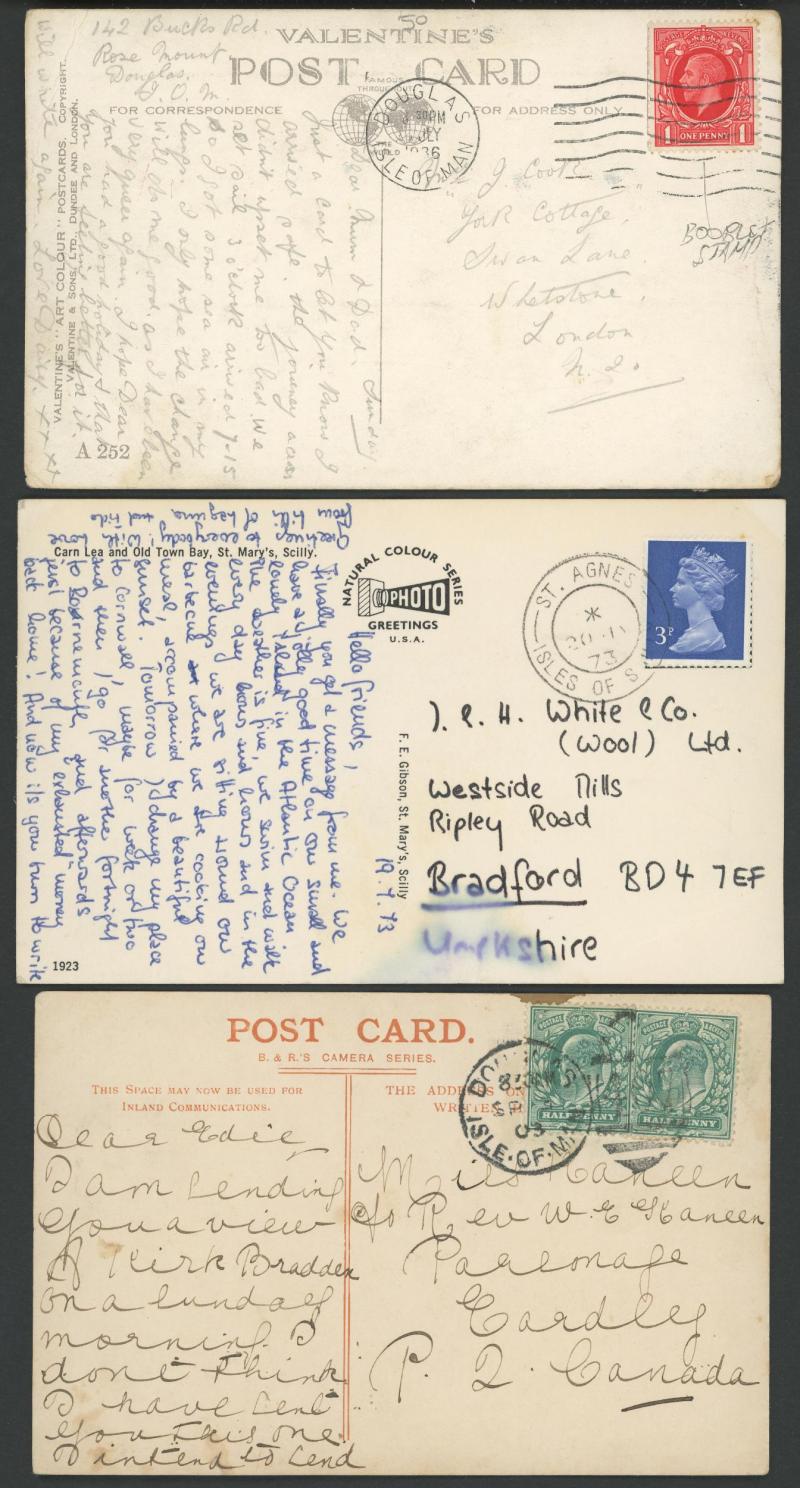 50
142 Bucks Rd.
Rose Mount
Douglas.
I. O. M.
VALENTINE'S
POST CARD
FAMOUS
THROUGHOUT
THE WORLD
FOR CORRESPONDENCE
FOR ADDRESS ONLY
DOUGLAS
JLY
1936
ISLE OF MAN
POSTAGE REVENUE
1 ONE PENNY 1
BOOKLET
STAMP
J Cook
York Cottage,
Swan Lane.
Whetstone.
London
N. 20
Sunday
Dear Mum & Dad.
Just a card to let you know I
arrived safe. the journey across
didn't upset me too bad. We
set sail 3 o'clock arrived 7-15
so I got some sea air in my
lungs. I only hope the change
will do me good, as I have been
very queer again. I hope Dear
you had a good holiday & that
you are feeling better for it.
will write again. Love Daisy. xxxx
VALENTINE'S "ART COLOUR" POSTCARDS. COPYRIGHT.
VALENTINE & SONS, LTD., DUNDEE AND LONDON.
A 252
Carn Lea and Old Town Bay, St. Mary's, Scilly.
NATURAL COLOUR SERIES
PHOTO
GREETINGS
U.S.A.
ST. AGNES
*
73
ISLES OF
3P
J. P. H. White & Co.
(Wool) Ltd.
Westside Mills
Ripley Road
Bradford BD4 7EF
Yorkshire
F. E. Gibson, St. Mary's, Scilly
19.7.73
Hello friends,
Finally you get a message from me. We
have a jolly good time on our small and
lovely island in the Atlantic Ocean
The weather is fine, we swim and walk
every day hours and hours and in the
evenings we are sitting round our
barbecue where we are cooking our
meal, accompanied by a beautiful
sunset. Tomorrow I change my place
to Cornwall, maybe for week or two
and then I go for another fortnight
to Bournemouth and afterwards
just because of my exhausted money
back home! And now it's your turn to write
Greetings to everybody! With love
from
1923
POST CARD.
B. & R.'S CAMERA SERIES.
THIS SPACE MAY NOW BE USED FOR
INLAND COMMUNICATIONS.
THE ADDRESS ON
WRITTEN
DOUGLAS
SP
ISLE-OF-MAN
POSTAGE REVENUE
HALFPENNY
POSTAGE REVENUE
HALFPENNY
Dear Edie
I am sending
you a view
of Kirk Bradden
on a sunday
morning. I
dont think
I have sent
you this one.
I intend to send
Miss Kaneen
c/o Rev W. E Kaneen
Parsonage
P. Q. Canada